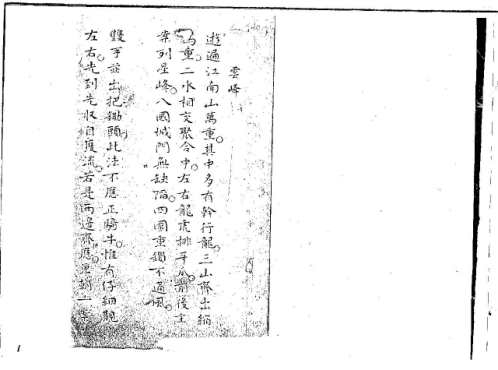 雲峰
遊遍江南山萬重。其中多有幹行龍。三山齊出
重。二水相交聚合中。左右龍虎排牙爪。前後主
案列星峰。八國城門無缺陷。四圍重鎖不通風。
雙手並出把鋤頭此法不應正騎牛。惟有仔細
左右先到先收自護流。若是兩邊齊應
1